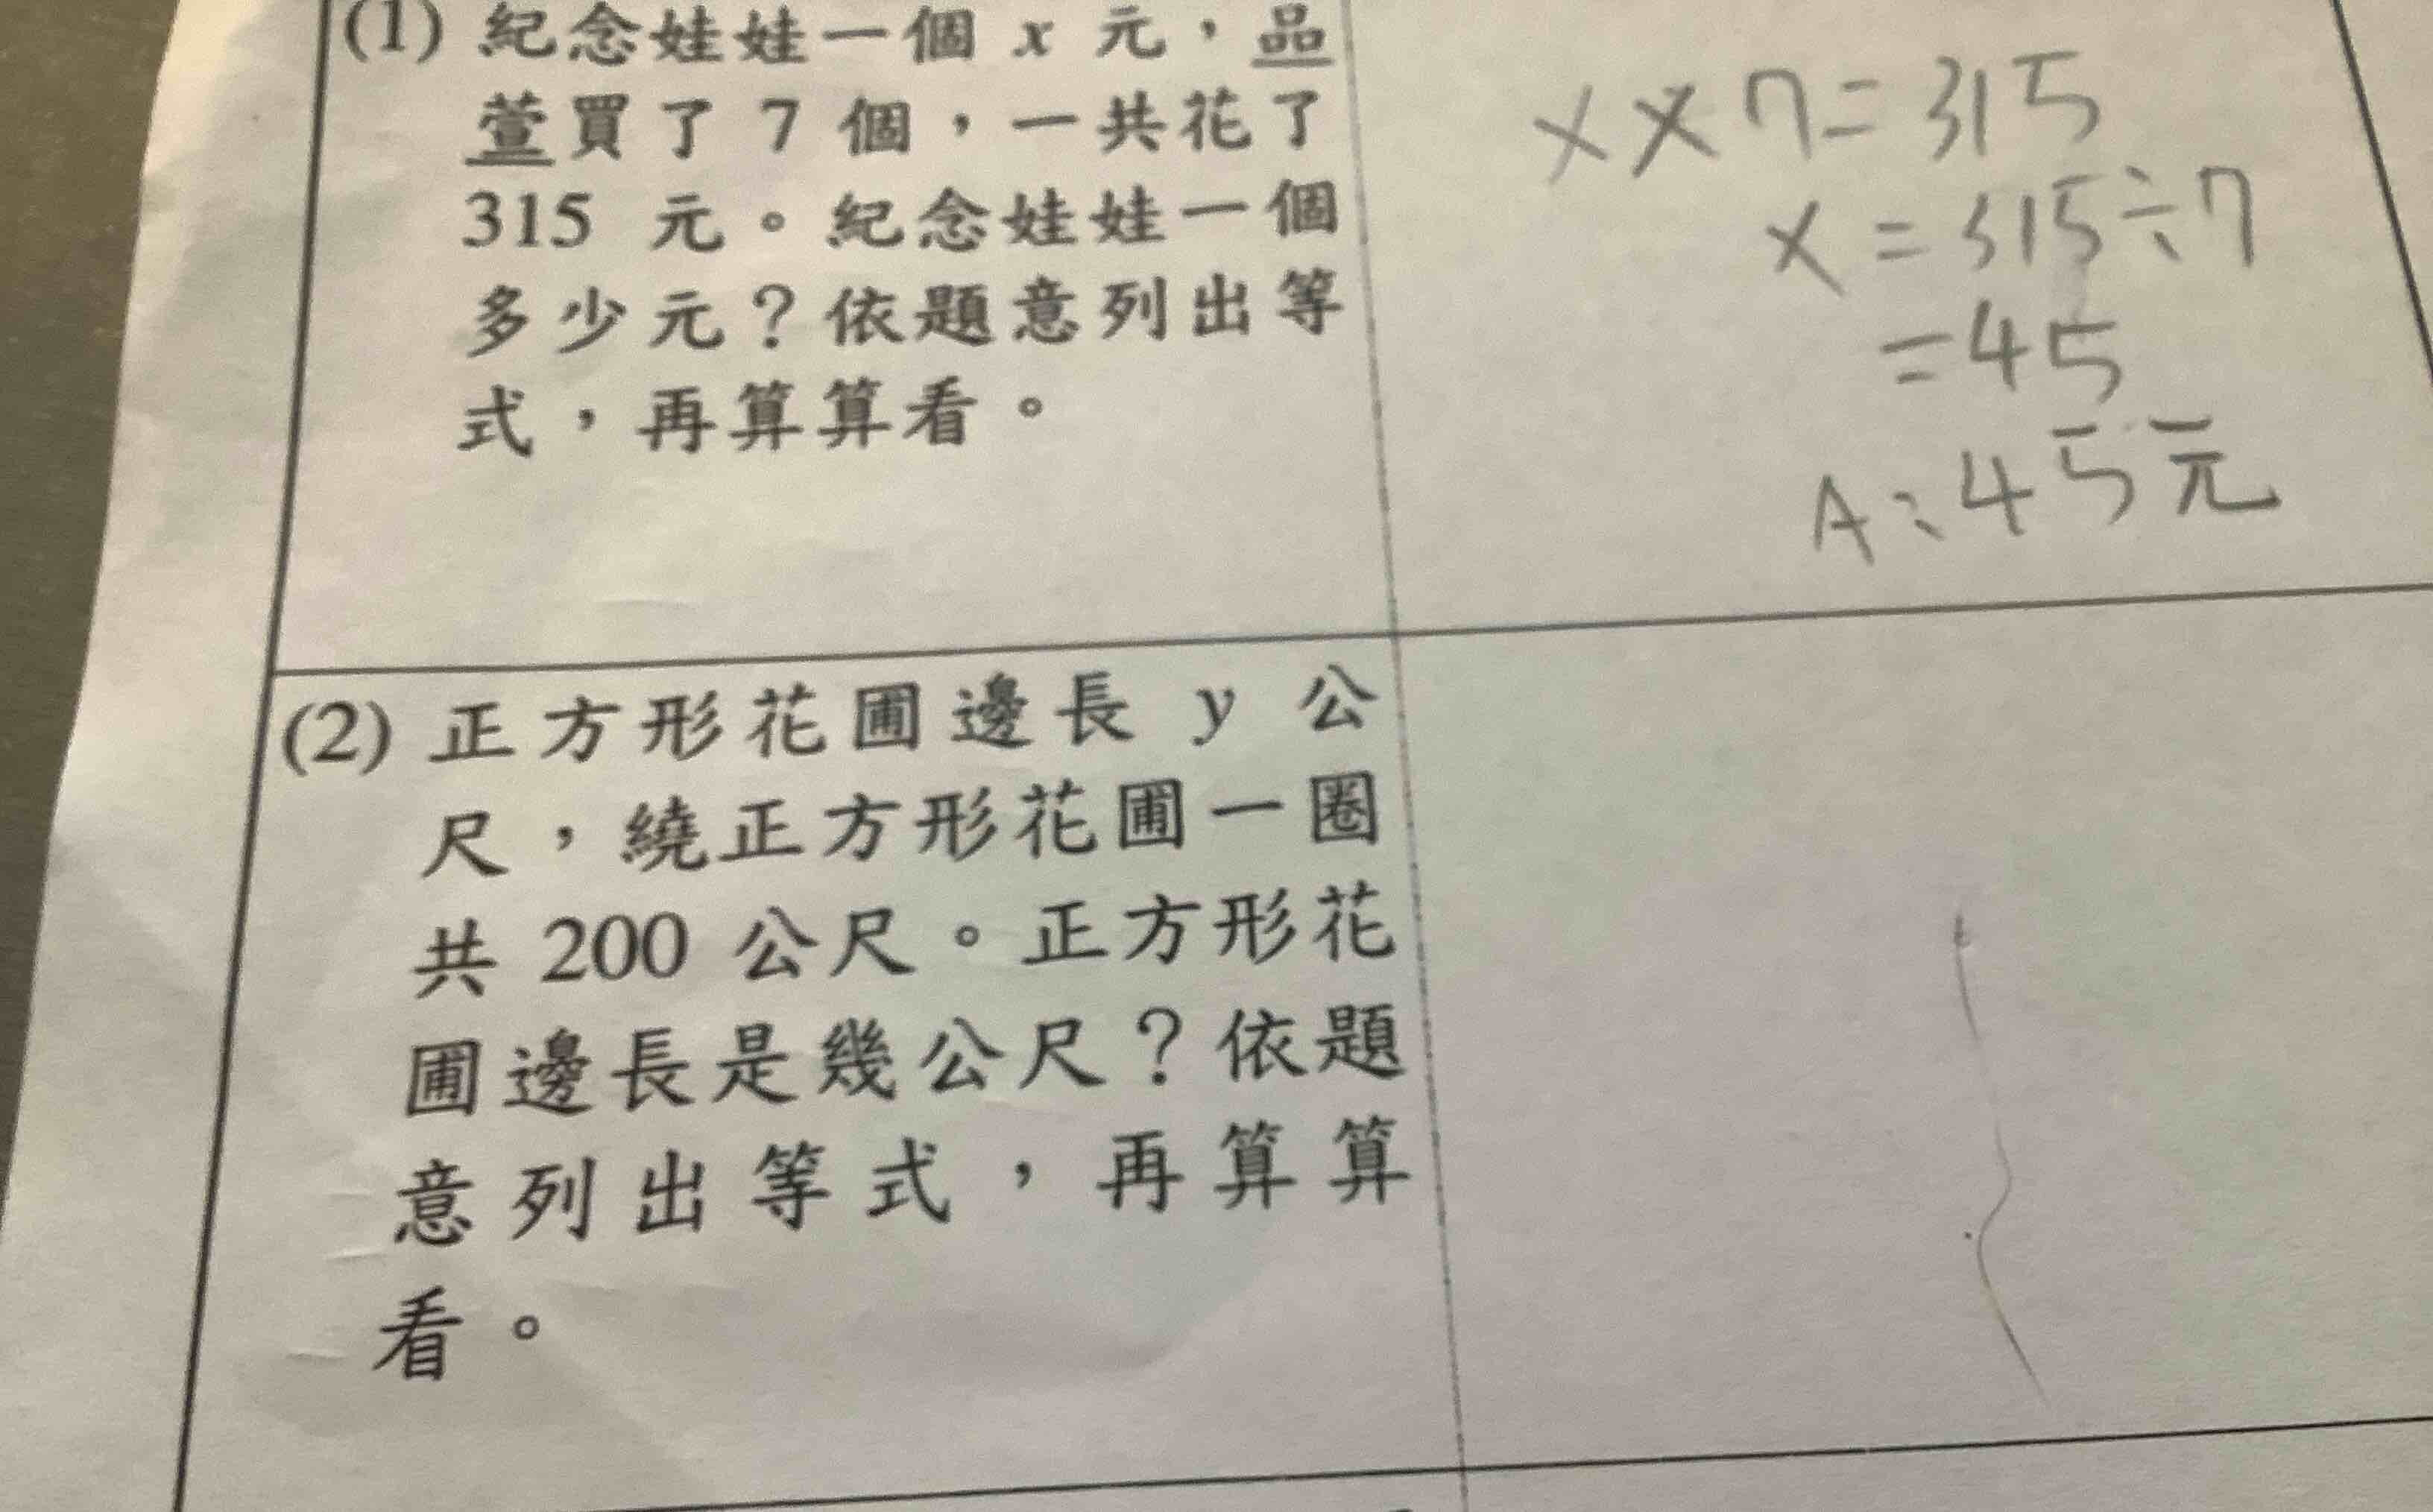 (1) 紀念娃娃一個 x 元，品
萱買了 7 個，一共花了
315 元。紀念娃娃一個
多少元？依題意列出等
式，再算算看。
x×7=315
x=315÷7
=45
A:45元
(2) 正方形花圃邊長 y 公
尺，繞正方形花圃一圈
共 200 公尺。正方形花
圃邊長是幾公尺？依題
意列出等式，再算算
看。